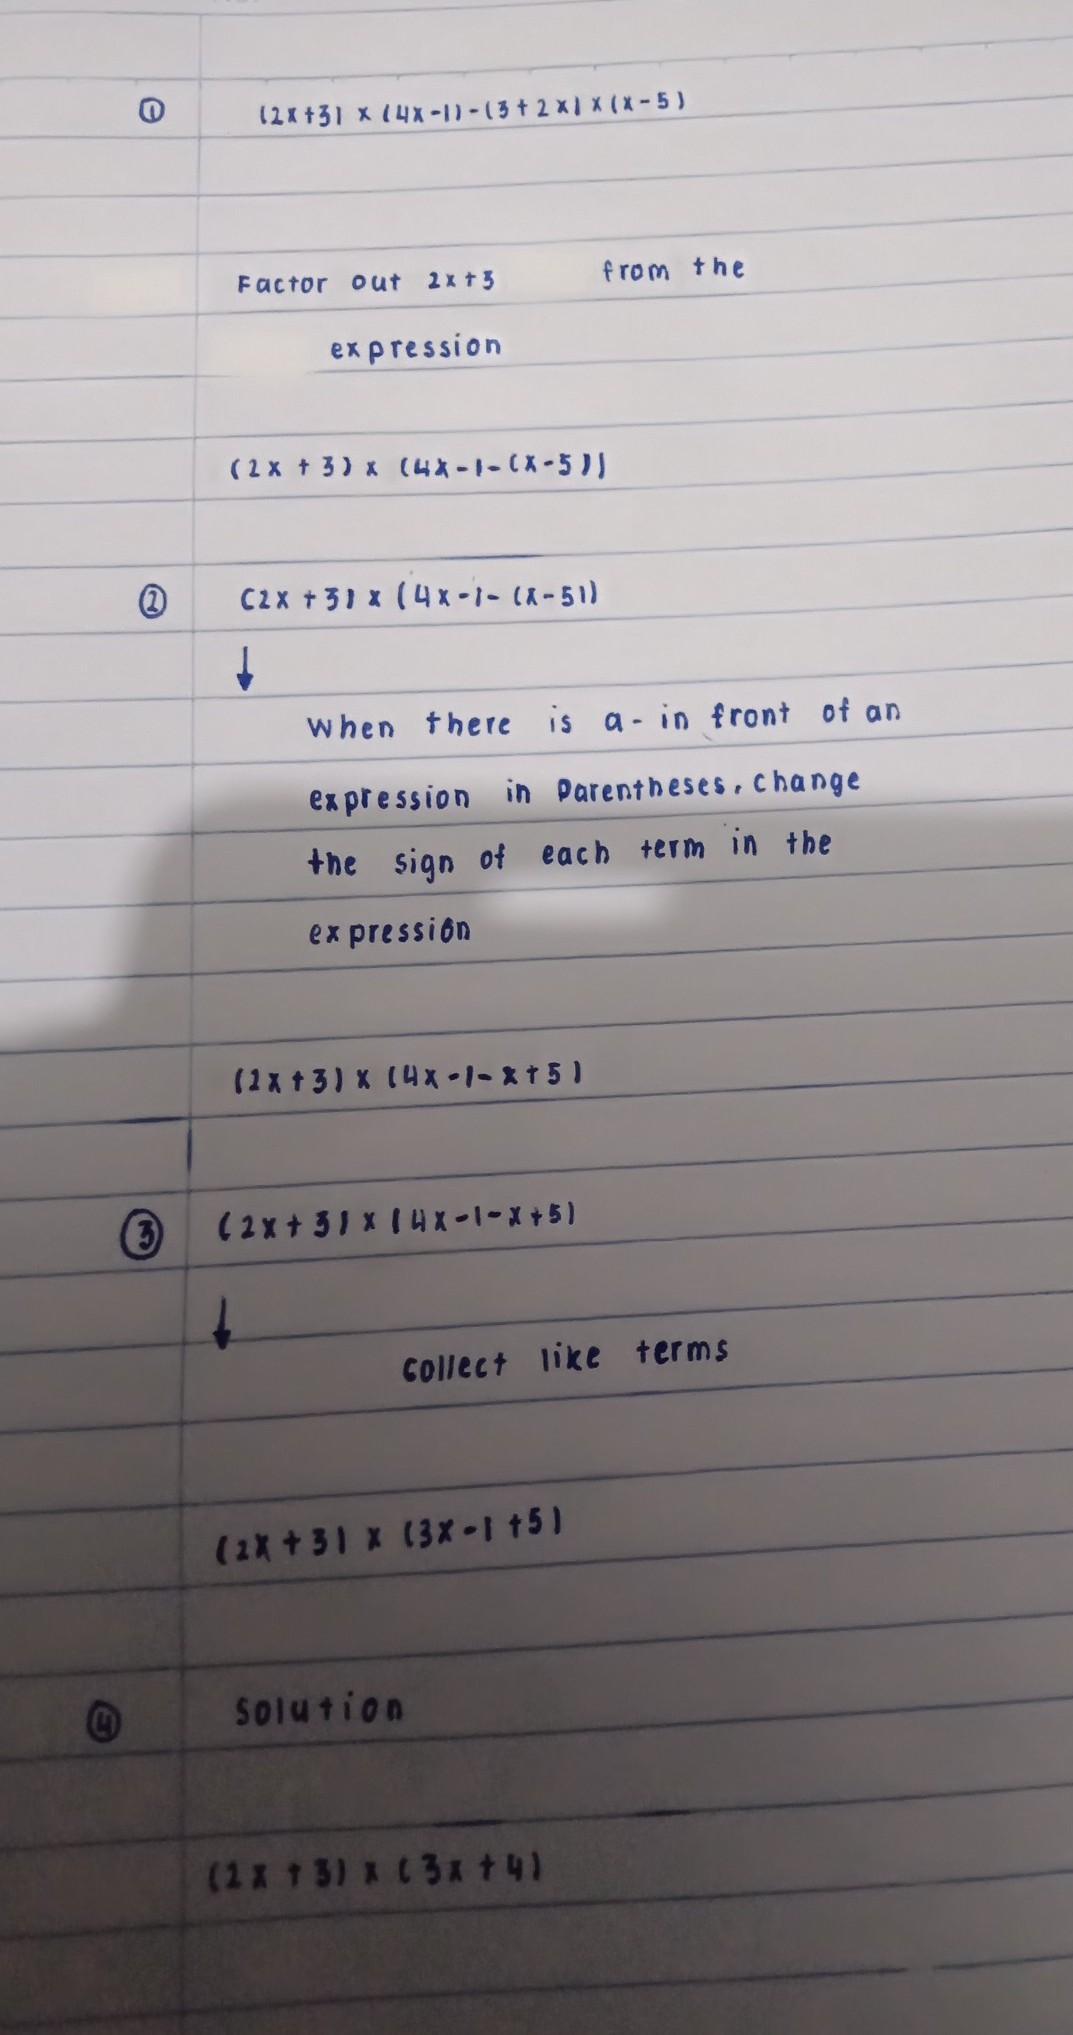 ① (2x+3) × (4x-1)-(3+2x)×(x-5)
Factor out 2x+3 from the
expression
(2x + 3) × (4x-1-(x-5))
② (2x +3) × (4x-1- (x-5))
↓
When there is a - in front of an
expression in Parentheses, change
the sign of each term in the
expression
(2x+3) × (4x-1-x+5)
③ (2x+3) × (4x-1-x+5)
↓
collect like terms
(2x+3) × (3x-1+5)
④ solution
(2x+3) × (3x+4)